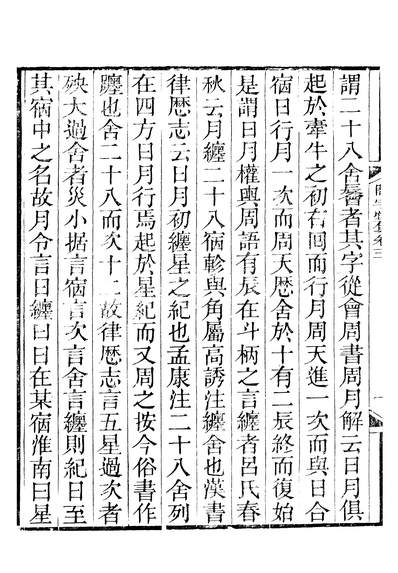 謂二十八舍𦤀者其字從會周書周月解云日月俱
起於牽牛之初右回而行月周天進一次而與日合
宿日行月一次而周天歴舍於十有二辰終而復始
是謂日月權輿周語有辰在斗柄之言纏者呂氏春
秋云月纏二十八宿軫與角屬高誘注纏舍也漢書
律歴志云日月初纏星之紀也孟康注二十八舍列
在四方日月行焉起於星紀而又周之按今俗書作
躔也舍二十八而次十二故律歴志言五星過次者
殃大過舍者災小据言宿言次言舍言纏則紀日至
其宿中之名故月令言日纏曰日在某宿淮南曰星